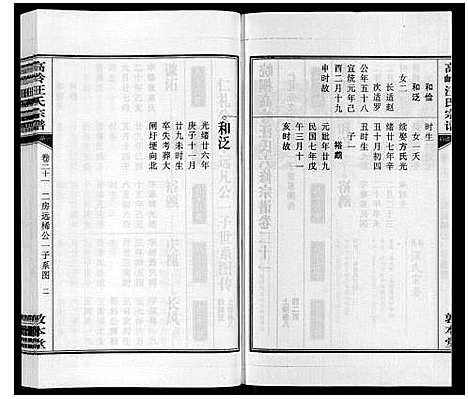 高岭汪氏宗谱
和俭
和泛
女二
长适赵
次适罗
公年五十八
宣统元年己
酉二月十九
申时故
时生
女一夭
续娶方氏光
绪廿七年辛
丑十月初四
丑时生
子一
裕鹉
元妣年廿九
民国七年戊
午三月十一
亥时故
敦本堂
和泛
光绪廿六年
庚子十一月
廿九未时生
卒失考葬大
闸圩埂向北
高岭汪氏宗谱
卷二十一
二房远稀公一子系图
二
敦本堂